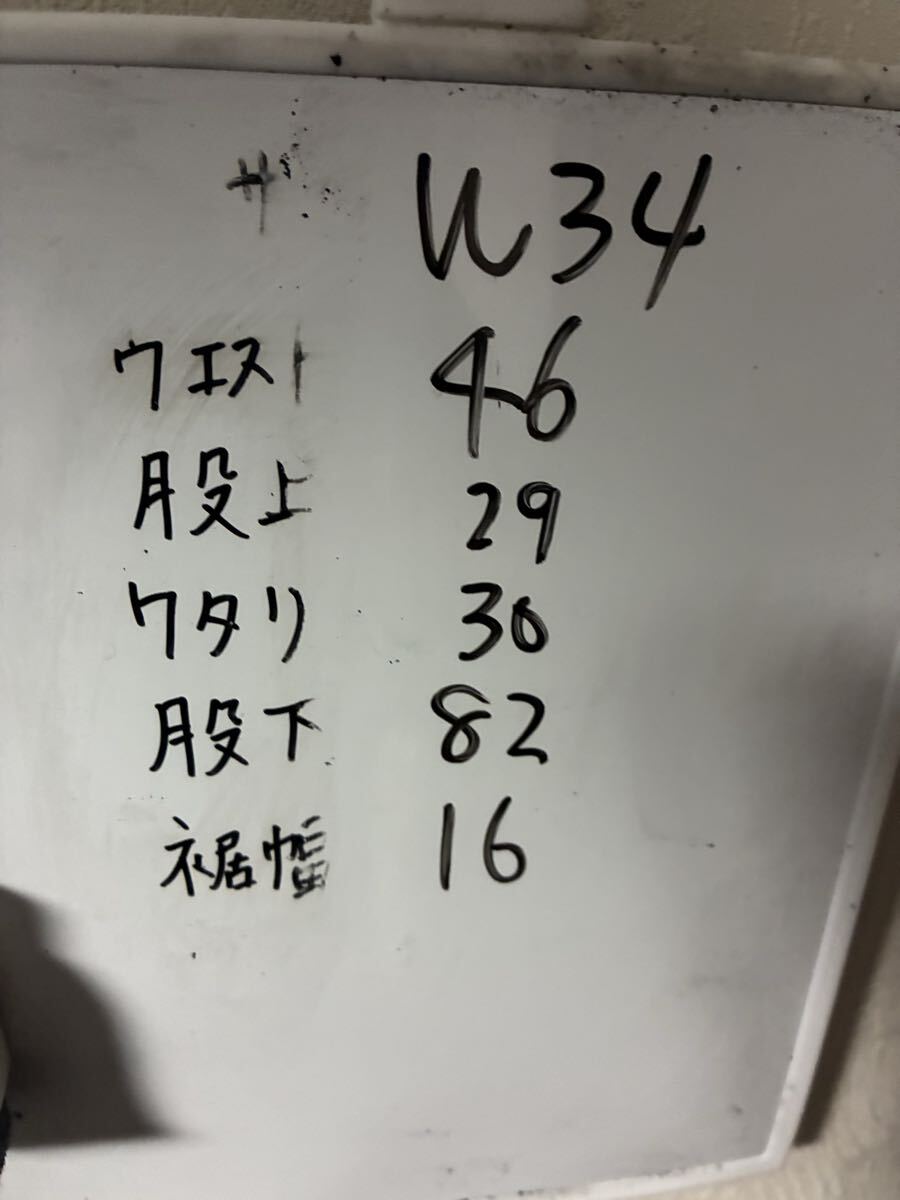 サ W34
ウエスト 46
股上 29
ワタリ 30
股下 82
裾幅 16